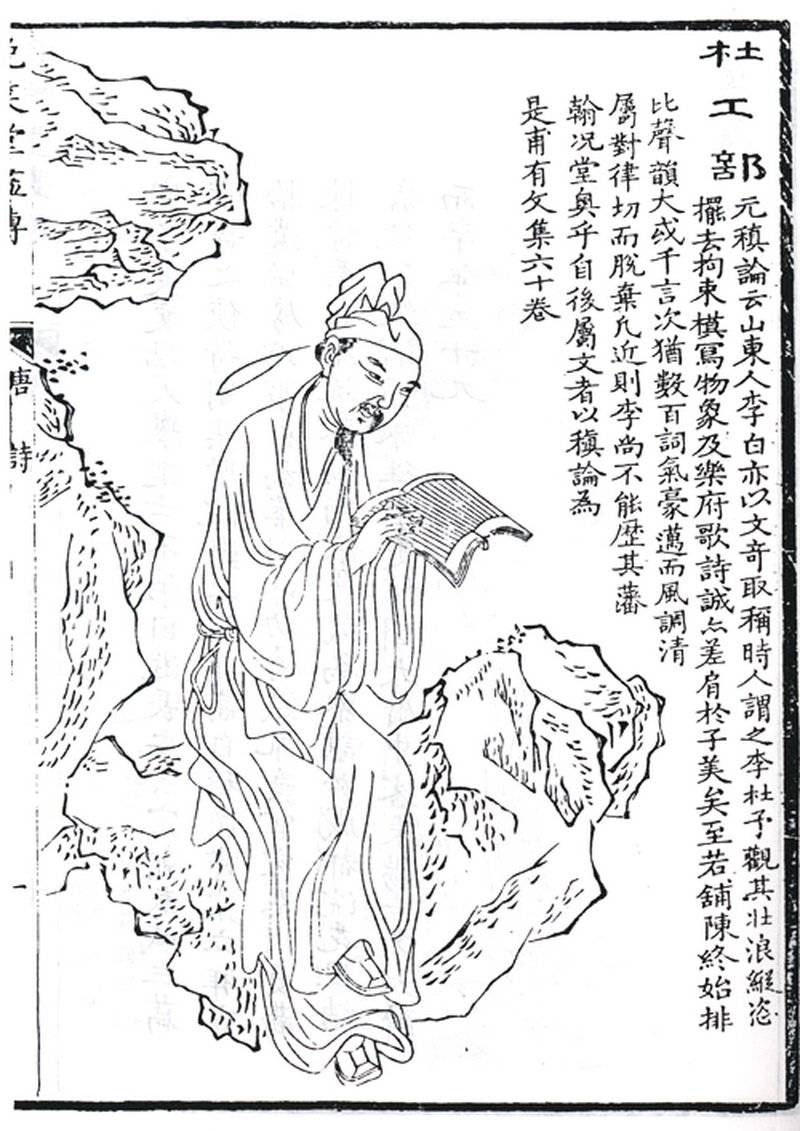 杜工部
元稹論云山東人李白亦以文奇取稱時人謂之李杜予觀其壯浪縱恣
擺去拘束模寫物象及樂府歌詩誠亦差肩於子美矣至若鋪陳終始排
比聲韻大或千言次猶數百詞氣豪邁而風調清
屬對律切而脫棄凡近則李尚不能歷其藩
翰况堂奥乎自後屬文者以稹論為
是甫有文集六十卷
晚笑堂畫傳
唐詩
一